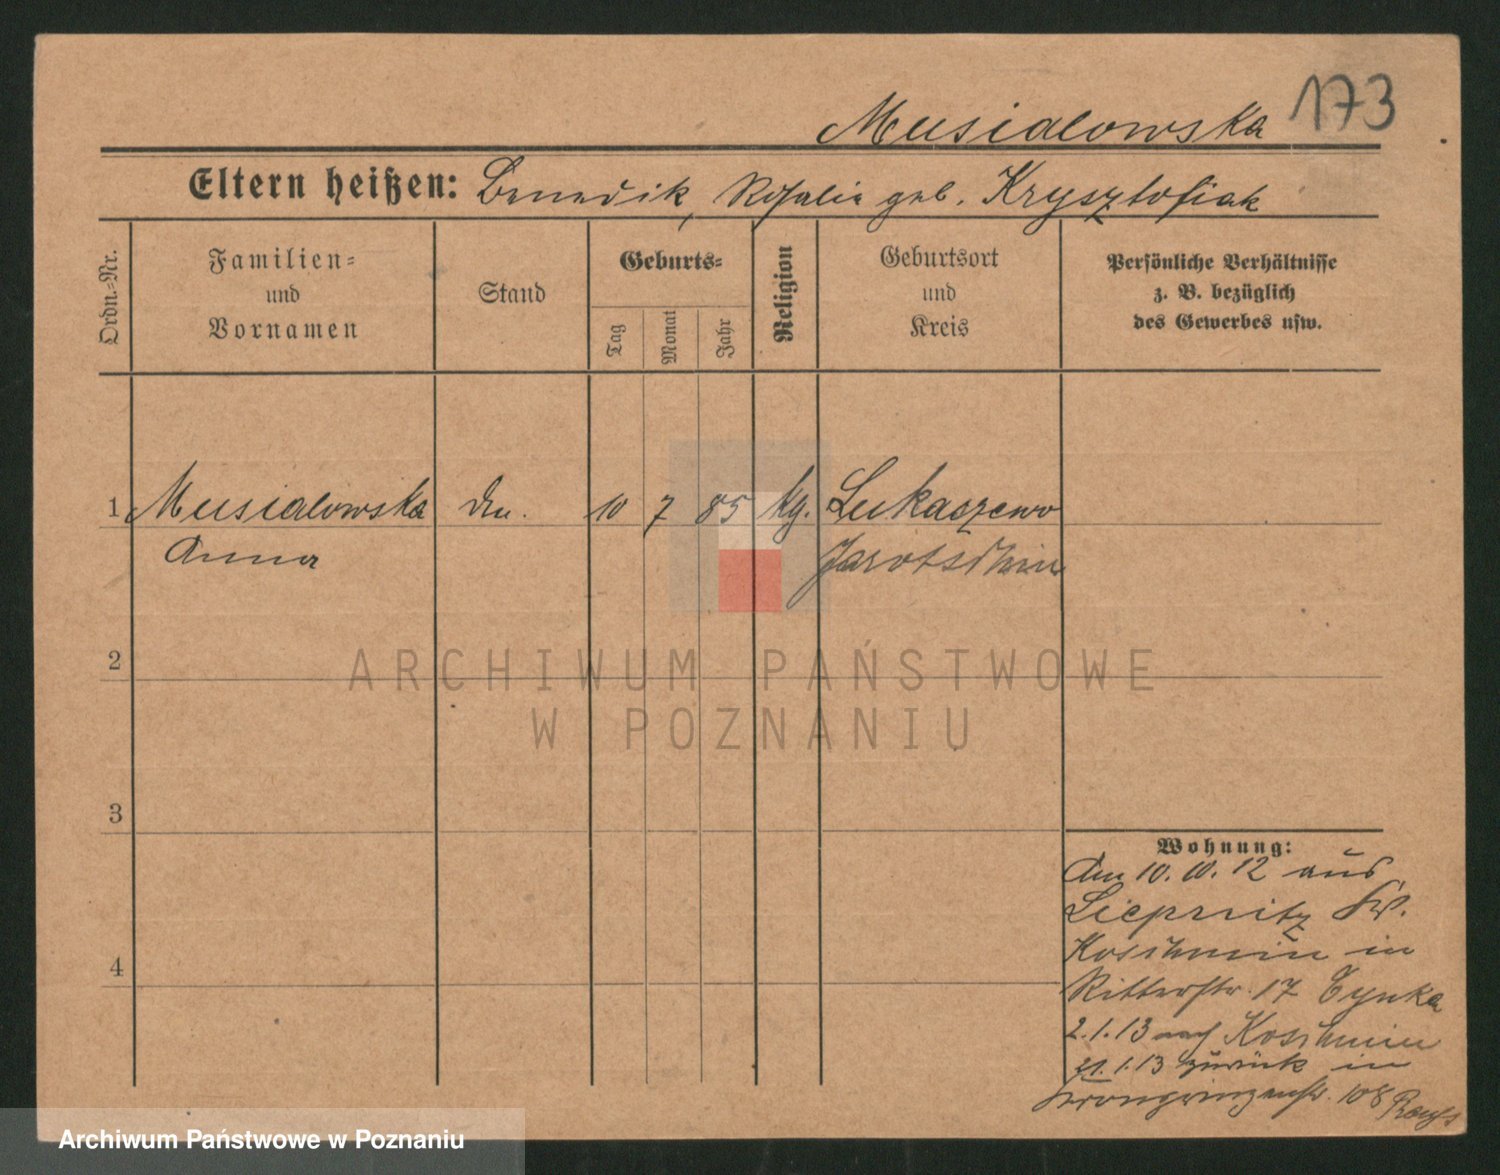 Musialowska 173
Eltern heißen: Benedik, Rosalie geb. Krysztofiak
Ordn.-Nr.
Familien-
und
Vornamen
Stand
Geburts-
Tag
Monat
Jahr
Religion
Geburtsort
und
Kreis
Persönliche Verhältnisse
z. B. bezüglich
des Gewerbes usw.
1 Musialowska 10 7 85 kg. Lukaszewo
Anna Jarotschin
2
ARCHIWUM PAŃSTWOWE
W POZNANIU
3
Wohnung:
Am 10. 10. 12 aus
Koschmin in
4
Ritterstr. 17 Cynka
2.1.13 nach Koschmin
21.1.13 zurück in
Kronprinzenstr. 108
Archiwum Państwowe w Poznaniu